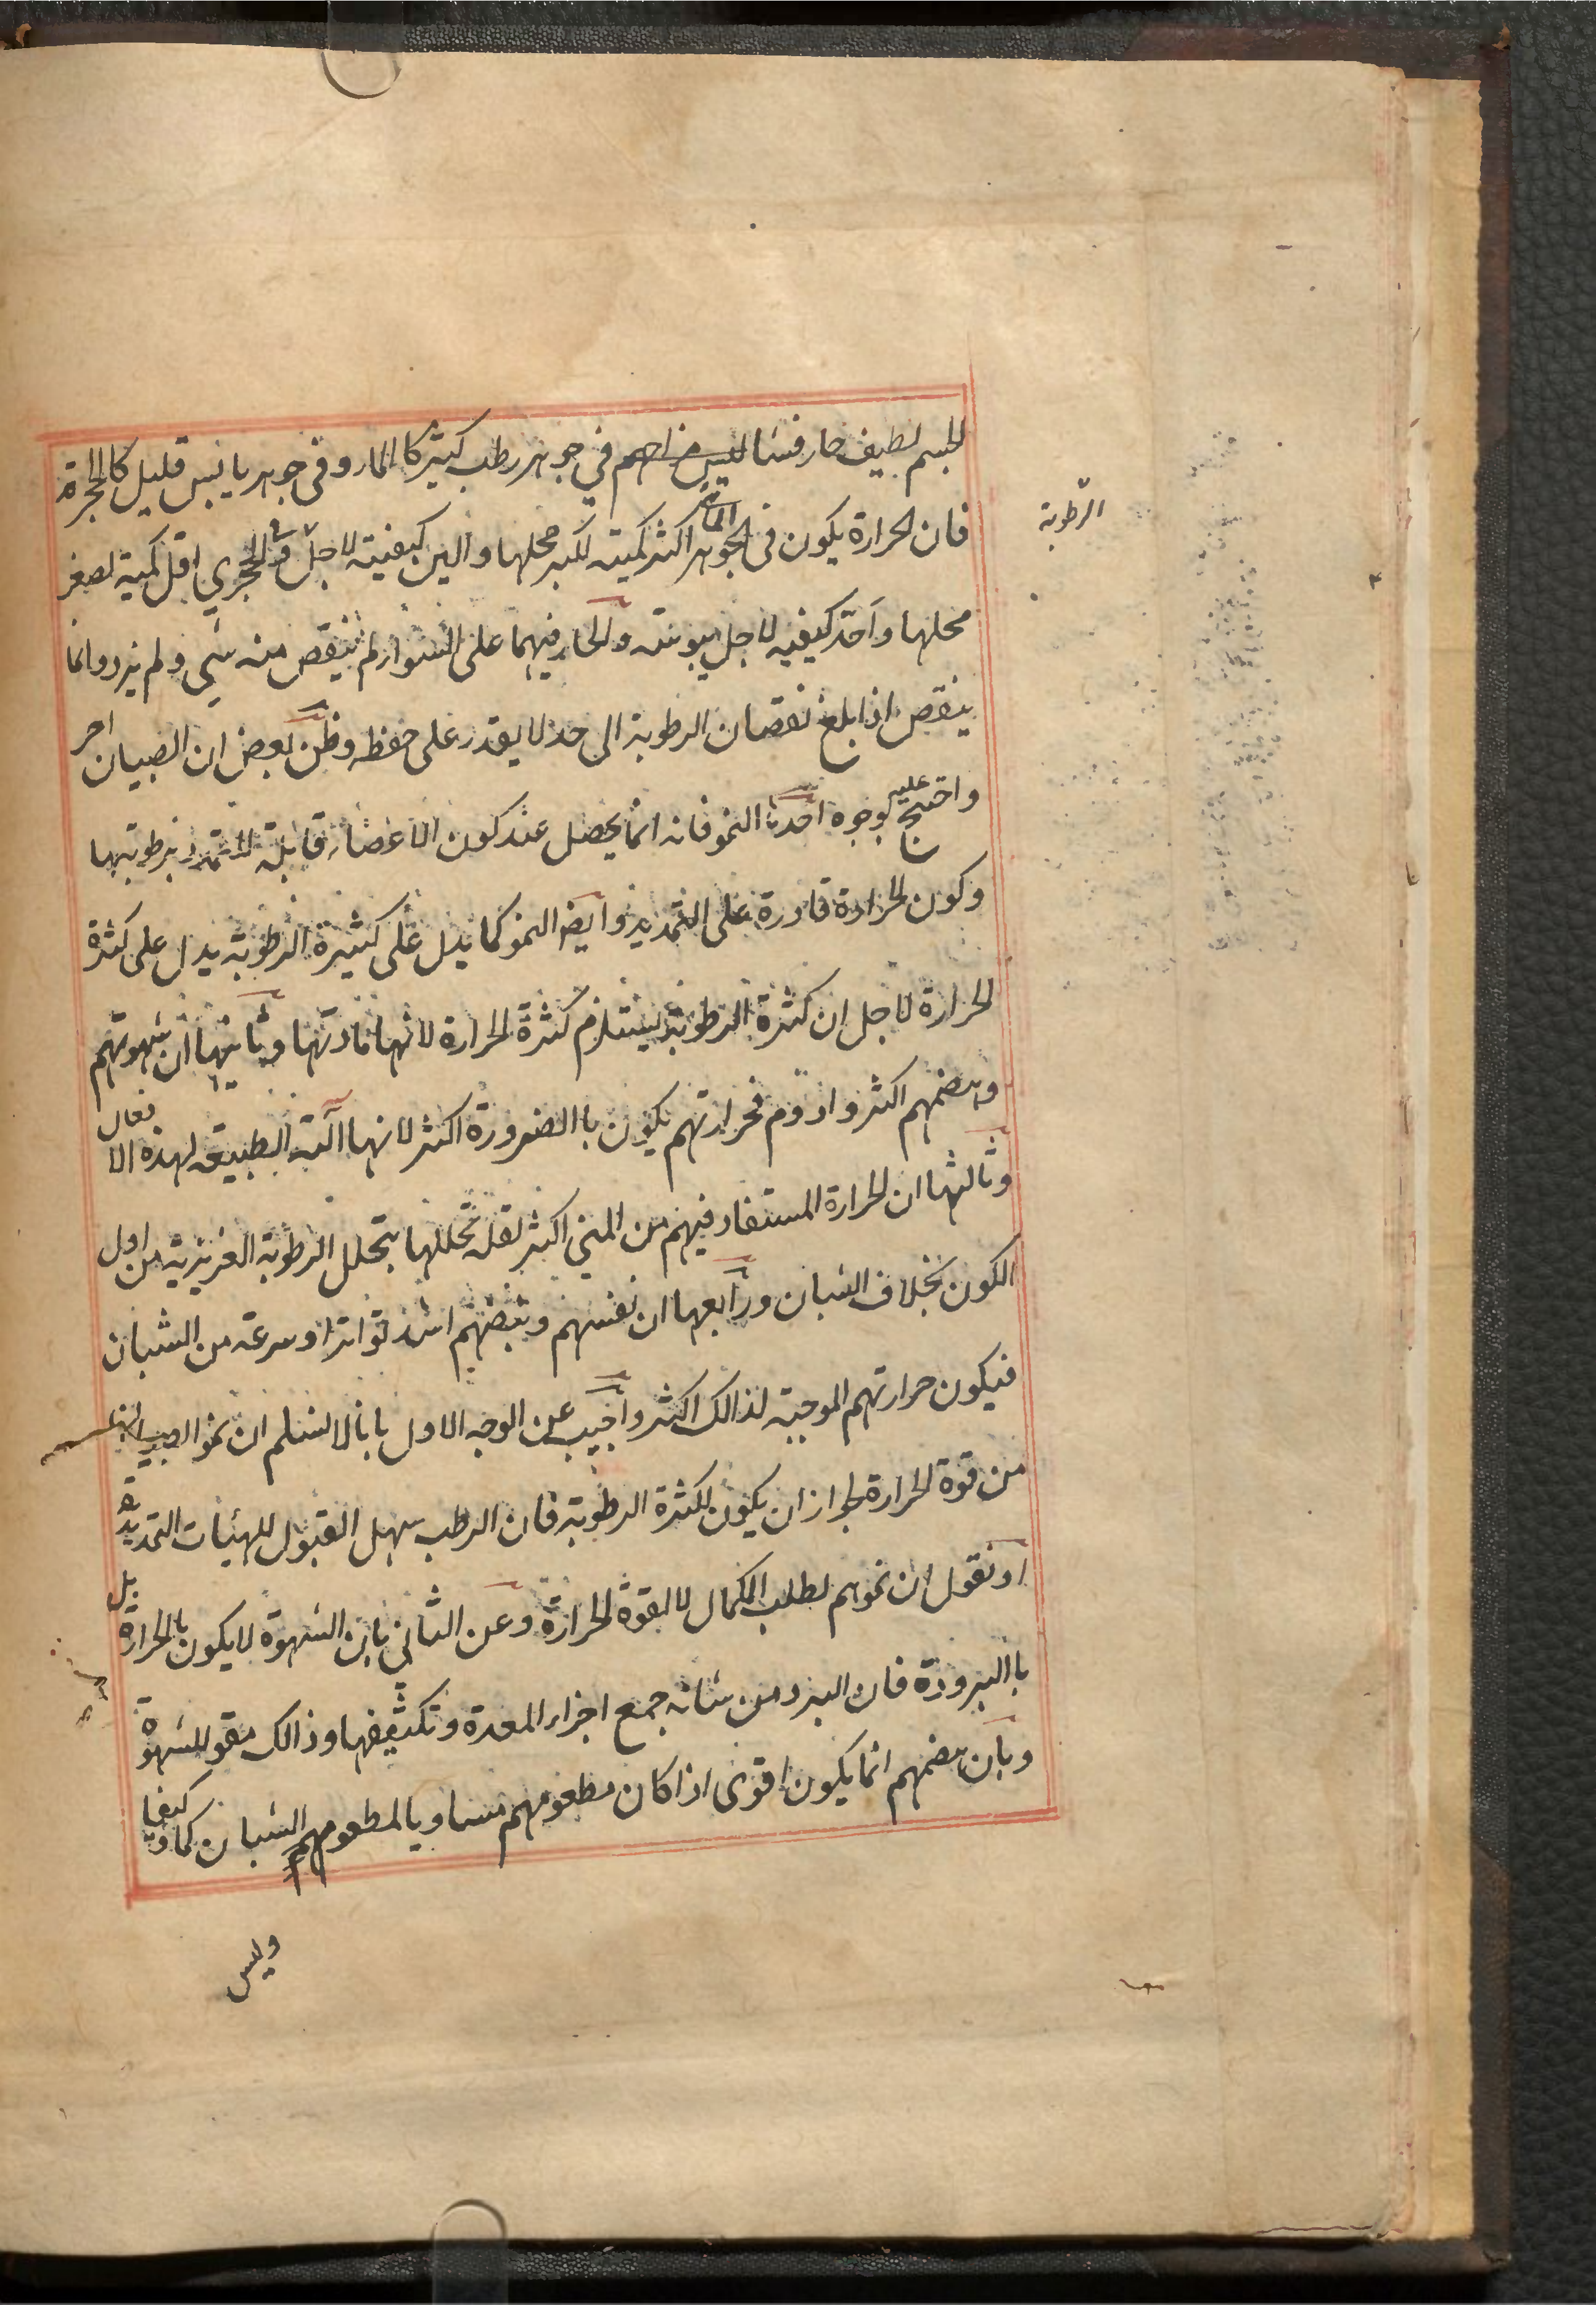 الجسم لطيف حار فشا ليس مزاحم في جوهر رطب كثير كا الماء وفي جوهر يابس قليل كا الحجرة
فان الحرارة يكون في الجوهر المائي اكثر كمية لكبر محلها والين كيفيته لاجل وفي الحجري اقل كمية لصغر
الرطوبة
محلها واحد كيفيه لاجل يبوسته والحار فيهما على السواء لم ينقص منه شي ولم يزد وانما
ينقص اذا بلغ نقصان الرطوبة الى حد لا يقدر على حفظه وظن بعض ان الصبيان احر
واحتج عليه بوجوه احدها النمو فانه انما يحصل عند كون الاعضاء قابلة للتمدد برطوبتها
وكون الحرارة قادرة على التمديد وايض النمو كما يدل على كثيرة الرطوبة يدل على كثرة
الحرارة لاجل ان كثرة الرطوبة يستلزم كثرة الحرارة لانها مادتها وثانيها ان شهوتهم
وهضمهم اكثر وادوم فحرارتهم يكون باالضرورة اكثر لانها آلته الطبيعة لهذه الافعال
وثالثها ان الحرارة المستفاد فيهم من المني اكثر لقلة تحللها بتحلل الرطوبة الغريزية من اول
الكون بخلاف الشبان ورابعها ان نفسهم ونبضهم اشد تواترا وسرعة من الشبان
فيكون حرارتهم الموجبة لذالك اكثر واجيب عن الوجه الاول بانا لا نسلم ان نمو الصبيان
من قوة الحرارة لجواز ان يكون لكثرة الرطوبة فان الرطب سهل القبول للهيئات التمديدية
او نقول ان نموهم لطلب الكمال لا لقوة الحرارة وعن الثاني بان الشهوة لا يكون بالحرارة بل
باالبرودة فان البرد من شانه جمع اجزاء المعدة وتكثيفها وذالك مقو للشهوة
وبان هضمهم انما يكون اقوى اذا كان مطعومهم مساويا لمطعومهم الشبان كما وكيفا
وليس